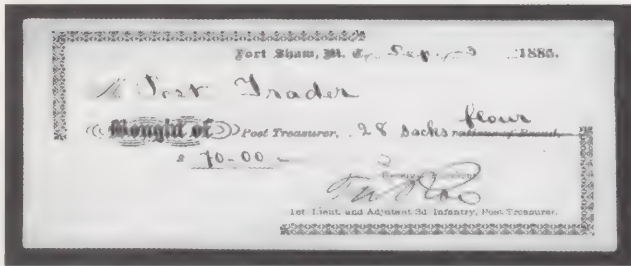 Fort Shaw, M. T., Sep. 3 1885.
M Post Trader
flour
Bought of Post Treasurer, 28 sacks rations of Bread,
$ 70-00
1st Lieut. and Adjutant 3d Infantry, Post Treasurer.